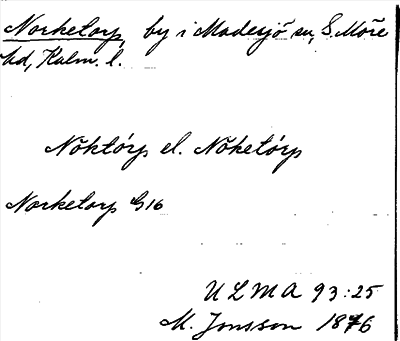 Norketorp, by i Madesjö sn, S. Möre
hd, Kalm. l.
Nŏktórp el. Nŏketórp
Norketorp G16
ULMA 93:25
M. Jonsson 1876